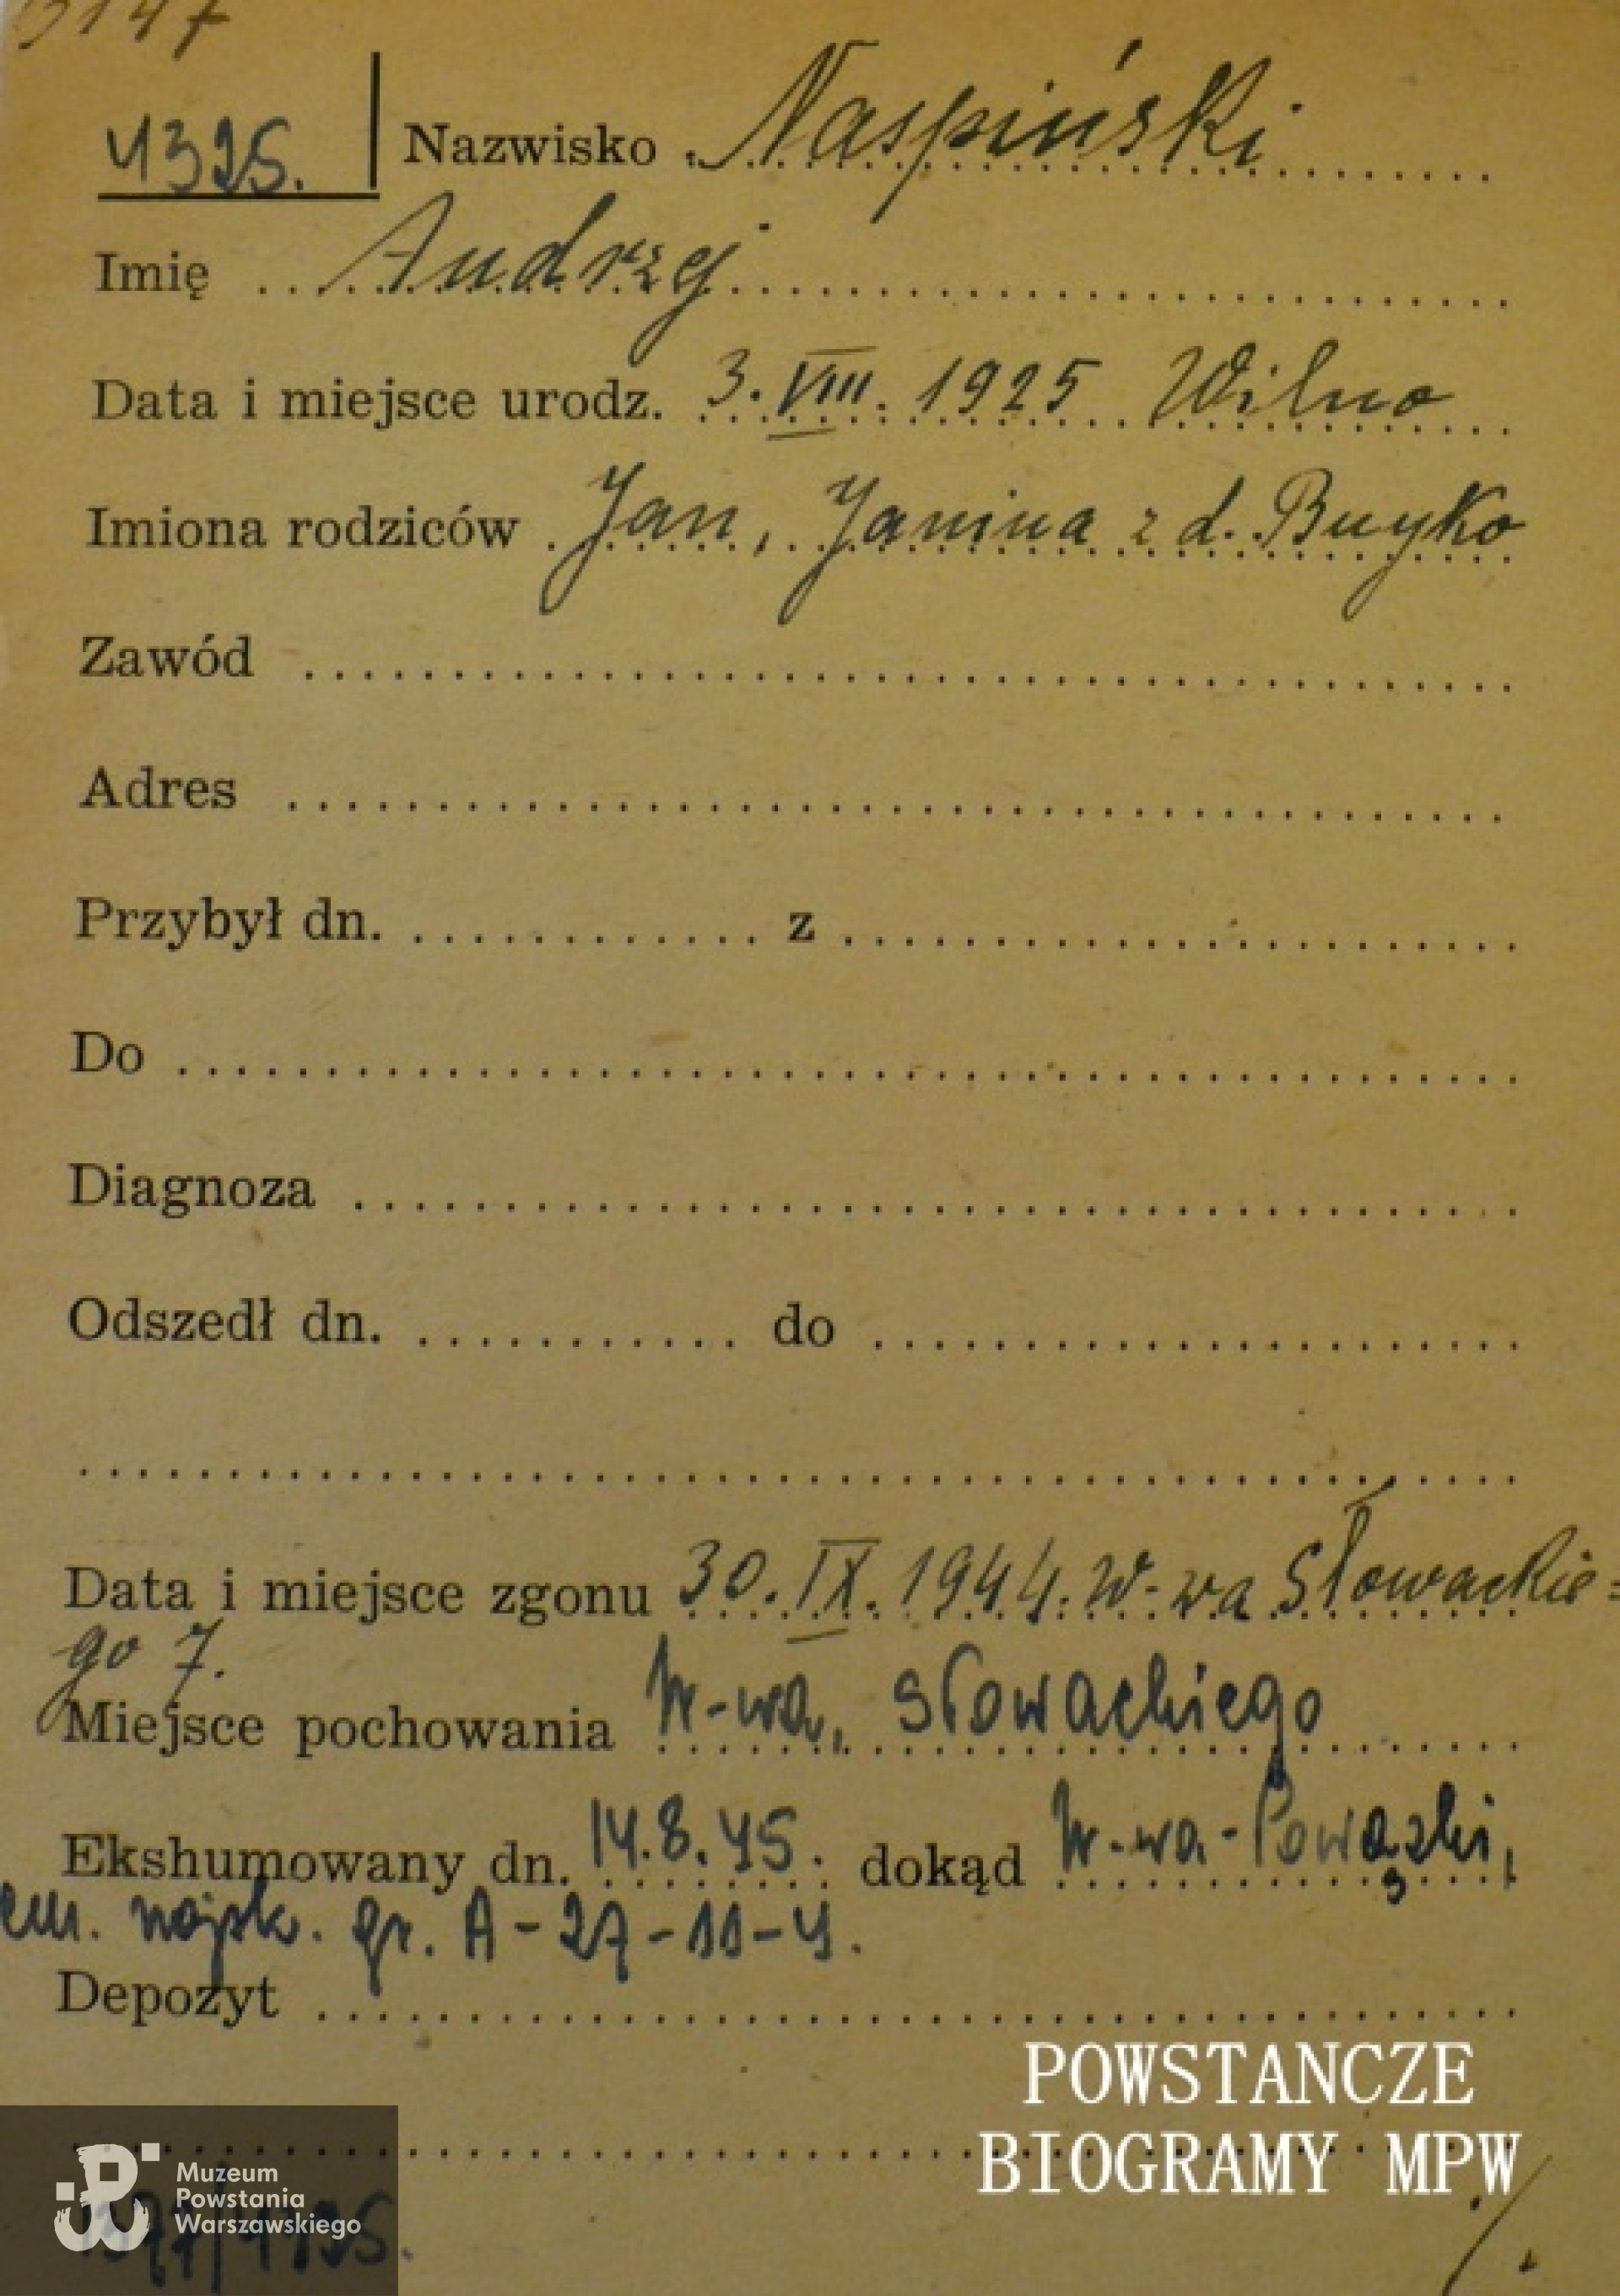 5147
4395. Nazwisko Naspiński
Imię Andrzej
Data i miejsce urodz. 3. VIII. 1925 Wilno
Imiona rodziców Jan, Janina z d. Buyko
Zawód
Adres
Przybył dn. z
Do
Diagnoza
Odszedł dn. do
Data i miejsce zgonu 30. IX. 1944. W-wa Słowackie=
go 7.
Miejsce pochowania W-wa, Słowackiego
Ekshumowany dn. 14.8.45. dokąd W-wa-Powązki,
cm. wojsk. gr. A-27-11-4.
Depozyt
POWSTANCZE
BIOGRAMY MPW
Muzeum
Powstania
Warszawskiego